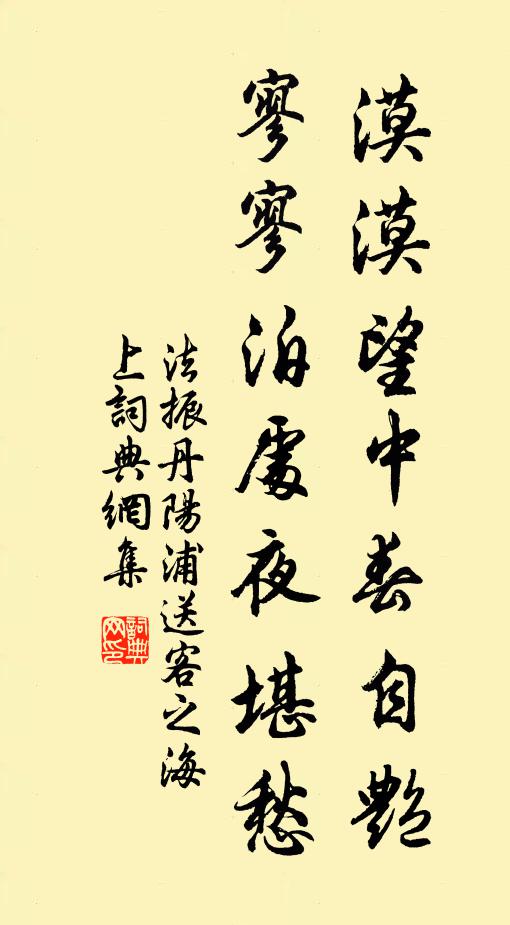 漠漠望中春自艷
寥寥泊處夜堪愁
法振丹陽浦送客之海
上詞典網集
詞典
网印